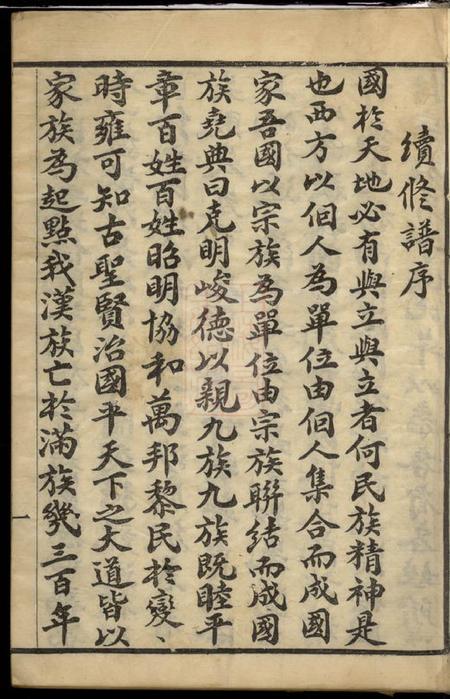 續修譜序
國於天地必有與立與立者何民族精神是
也西方以個人為單位由個人集合而成國
家吾國以宗族為單位由宗族聯結而成國
族堯典曰克明峻德以親九族九族既睦平
章百姓百姓昭明協和萬邦黎民於變、
時雍可知古聖賢治國平天下之大道皆以
家族為起點我漢族亡於滿族幾三百年
一